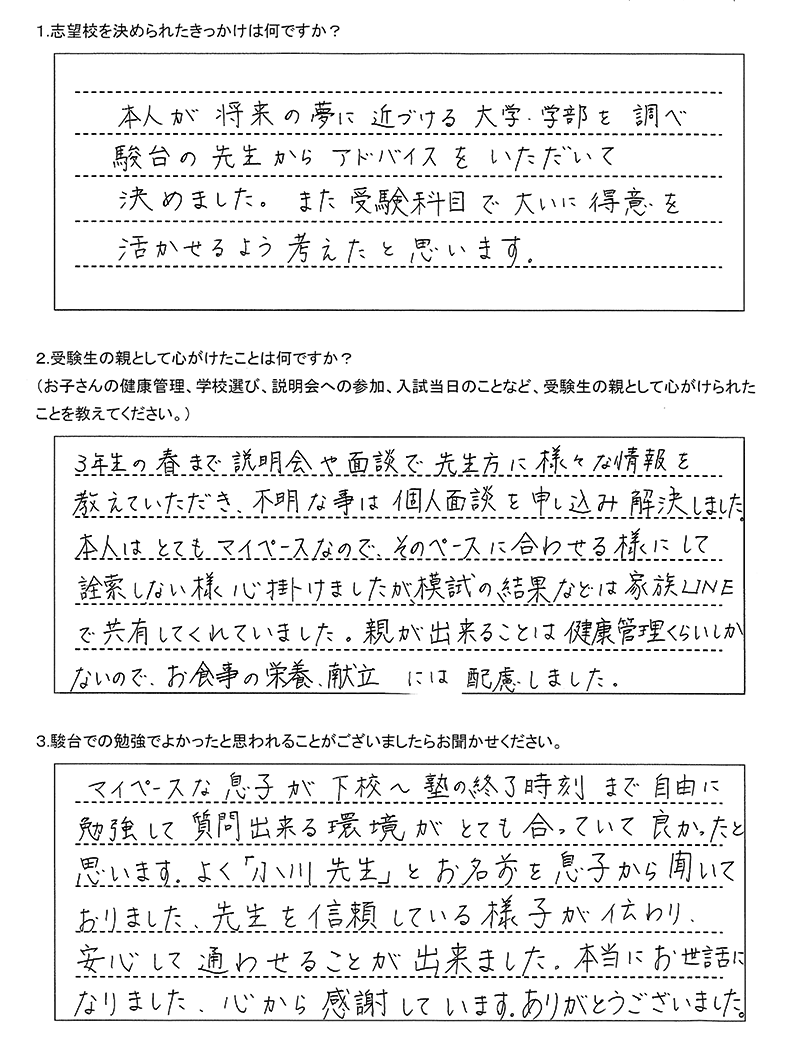 1.志望校を決められたきっかけは何ですか？
本人が将来の夢に近づける大学・学部を調べ
駿台の先生からアドバイスをいただいて
決めました。また受験科目で大いに得意を
活かせるよう考えたと思います。
2.受験生の親として心がけたことは何ですか？
（お子さんの健康管理、学校選び、説明会への参加、入試当日のことなど、受験生の親として心がけられた
ことを教えてください。）
3年生の春まで説明会や面談で先生方に様々な情報を
教えていただき、不明な事は個人面談を申し込み解決しました。
本人はとてもマイペースなので、そのペースに合わせる様にして
詮索しない様心掛けましたが、模試の結果などは家族LINE
で共有してくれていました。親が出来ることは健康管理くらいしか
ないので、お食事の栄養、献立には配慮しました。
3.駿台での勉強でよかったと思われることがございましたらお聞かせください。
マイペースな息子が下校〜塾の終了時刻まで自由に
勉強して質問出来る環境がとても合っていて良かったと
思います。よく「小川先生」とお名前を息子から聞いて
おりました、先生を信頼している様子が伝わり、
安心して通わせることが出来ました。本当にお世話に
なりました、心から感謝しています。ありがとうございました。